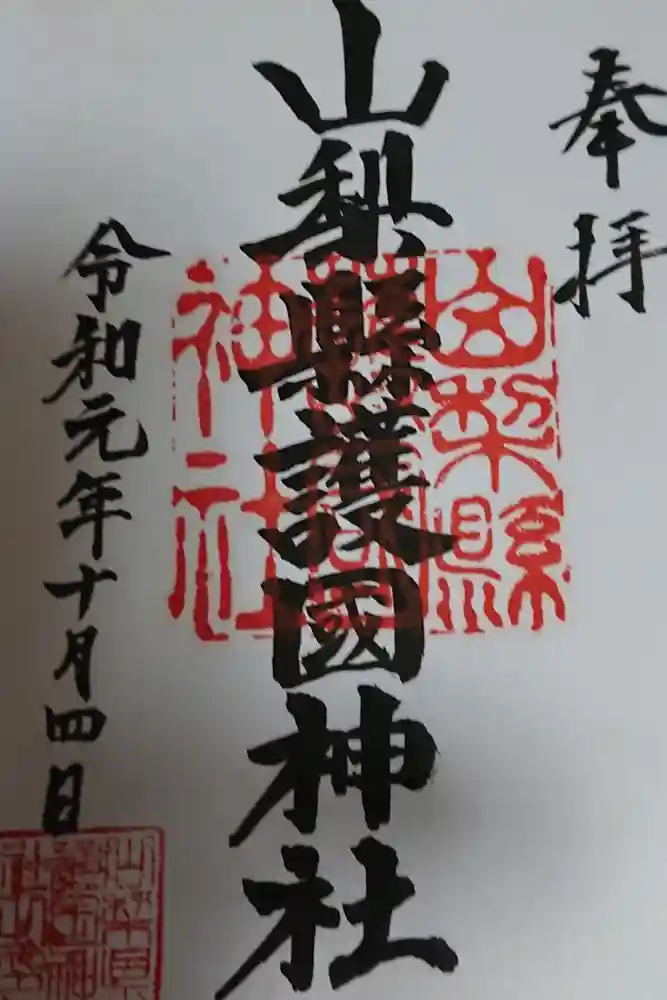 奉拝
山梨縣護國神社
山梨縣護國神社
令和元年十月四日